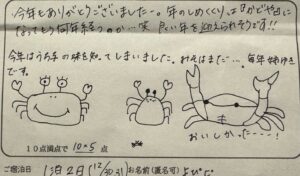 今年もありがとうございました。年のしめくくりは「かどや」に
なってもう何年経つのか…笑 良い年を迎えられそうです!!
今年はうお子の味を知ってしまいました。おそばまた…。毎年
です。
おいしかったー---!
10点満点で 10×5 点
ご宿泊日 1泊2日(12/30.31) お名前(匿名可)